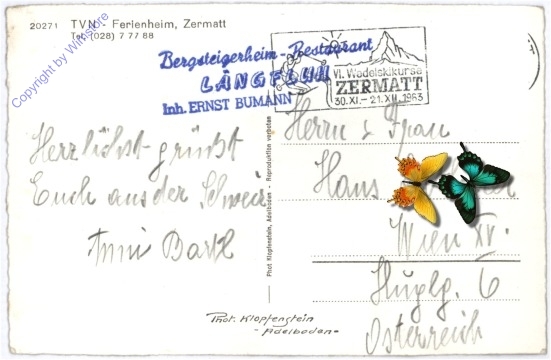 20271 TVN - Ferienheim, Zermatt
Tel. (028) 7 77 88
Copyright by Winstore
Bergsteigerheim - Restaurant
LÄNGFLUH
Inh. ERNST BUMANN
VI. Wedelskikurse
ZERMATT
30.XI.-21.XII.1963
Herzlichst grüßt
Euch aus der Schweiz
Anni Bartl
Phot Klopfenstein, Adelboden - Reproduktion verboten
Herrn & Frau
Hans
Wien XV.
Huglg. 6
Österreich
Phot. Klopfenstein
- Adelboden -